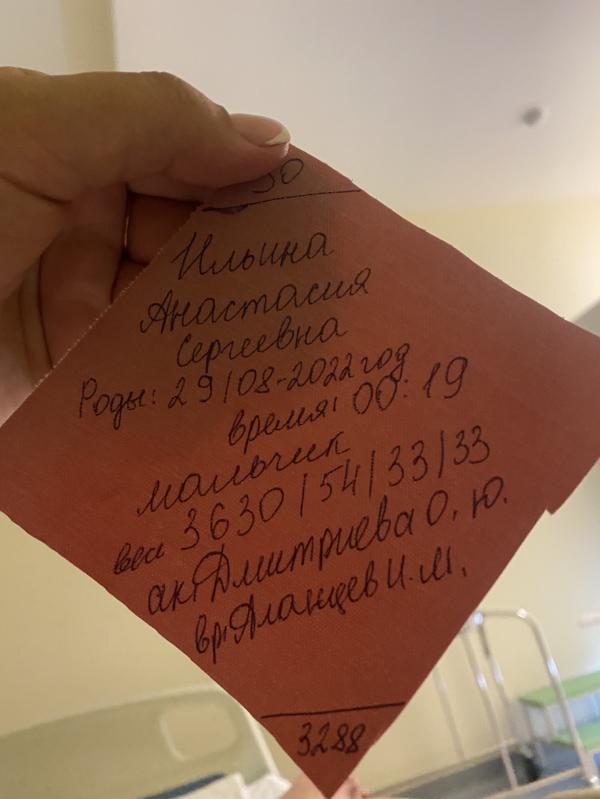 30
Ильина
Анастасия
Сергеевна
Роды: 29/08-2022 год
время: 00:19
мальчик
вес 3630/54/33/33
ак: Дмитриева О. Ю.
вр: Аланцев И. М.
3288